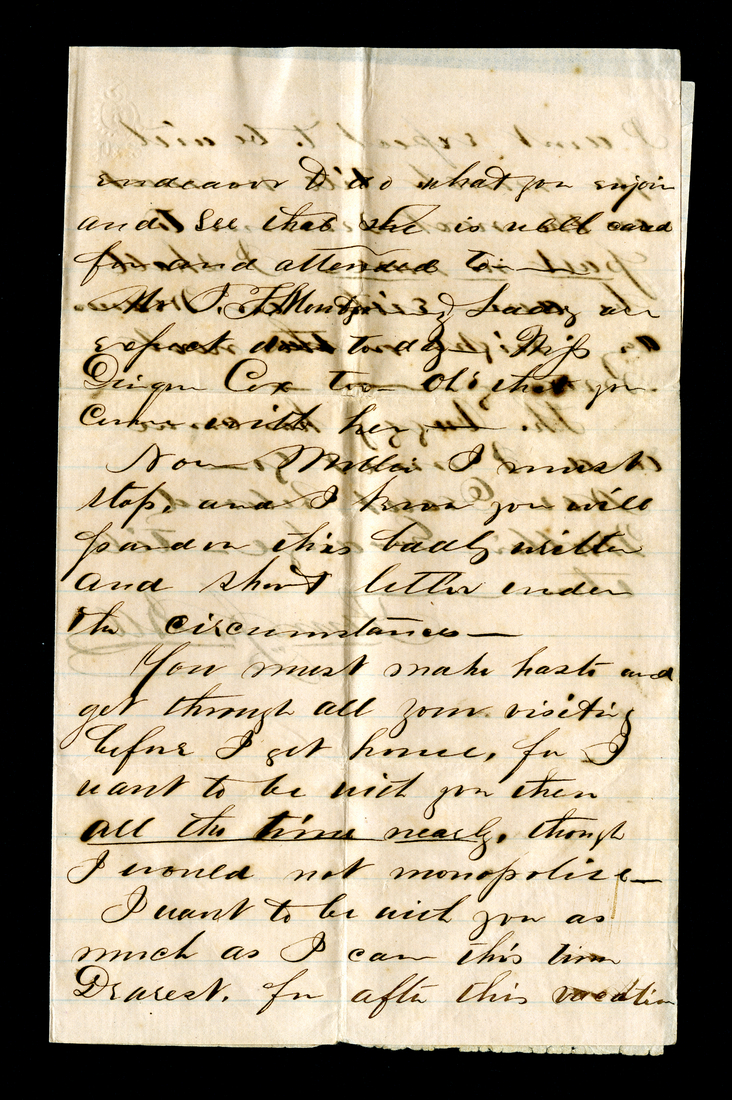 endeavor to do what you enjoin
and see that she is well cared
for and attended to—
Mr P. F. Montgomery's Lady we
expect down today— Miss
Cox too— Oh! that you
come with her—
Now Millie I must
stop, and I know you will
pardon this badly written
and short letter under
the circumstances—
You must make haste and
get through all your visiting
before I get home, for I
want to be with you then
all the time nearly, though
I would not monopolize—
I want to be with you as
much as I can this time
Dearest, for after this vacation